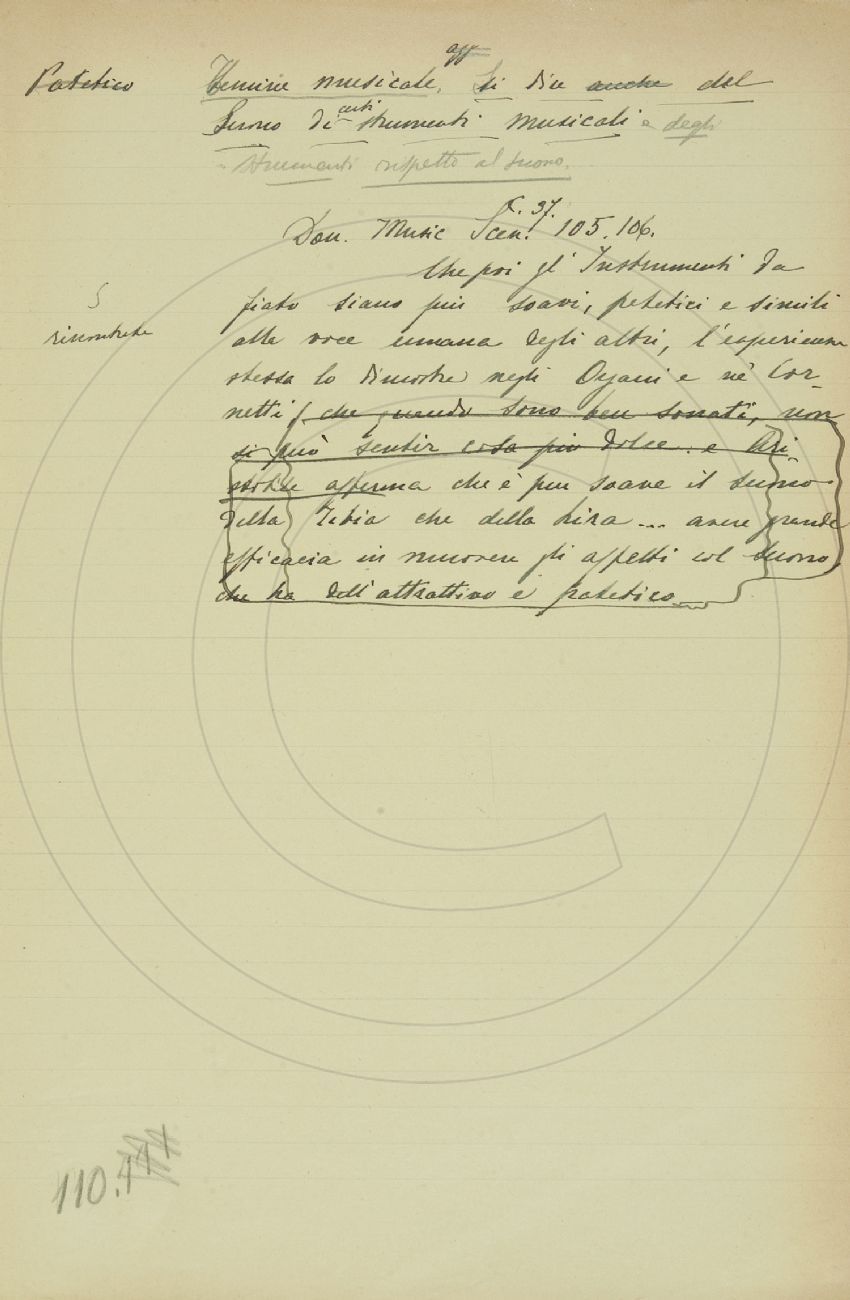 agg
Patetico Termine musicale. Si dice anche del
Suono di certi strumenti musicali e degli
strumenti rispetto al suono.
C. 37.
Don. Music Scen. 105.106.
Che poi gl' Instrumenti da
fiato siano più soavi, patetici e simili
alla voce umana degli altri, l'esperienza
riscontrata
stessa lo dimostra negli Organi e ne' Cor-
netti (che quando sono ben sonati, non
si può sentir cosa più dolce: e Ari-
stotile afferma che è più soave il suono
della Tibia che della Lira ... avere grande
efficacia in muovere gli affetti col suono
che ha dell'attrattivo e patetico
110.